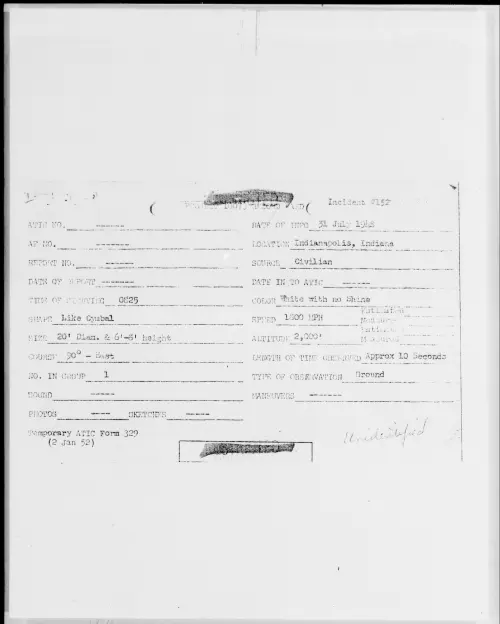 ( ( Incident #132
ATIC NO. ------ DATE OF INFO 31 July 1948
AF NO. ------- LOCATION Indianapolis, Indiana
REPORT NO. ------ SOURCE Civilian
DATE OF REPORT ------- DATE IN TO ATIC -----
TIME OF SIGHTING 0825 COLOR White with no Shine
SHAPE Like Cymbal SPEED 1500 MPH Estimated
SIZE 20' Diam. & 6'-8' height ALTITUDE 2,000'
COURSE 90° - East LENGTH OF TIME OBSERVED Approx 10 Seconds
NO. IN GROUP 1 TYPE OF OBSERVATION Ground
SOUND ----- MANEUVERS ------
PHOTOS ---- SKETCHES -----
Temporary ATIC Form 329
(2 Jan 52)
Unidentified